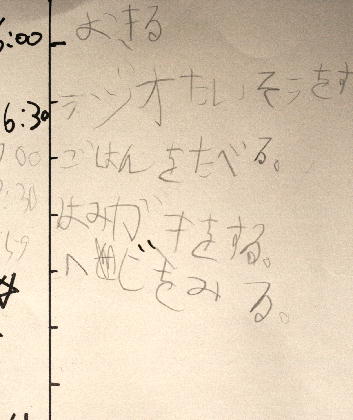 6:00 おきる
6:30 ラジオたいそうをす
7:00 ごはんをたべる。
7:30 はみがきをする。
をみる。